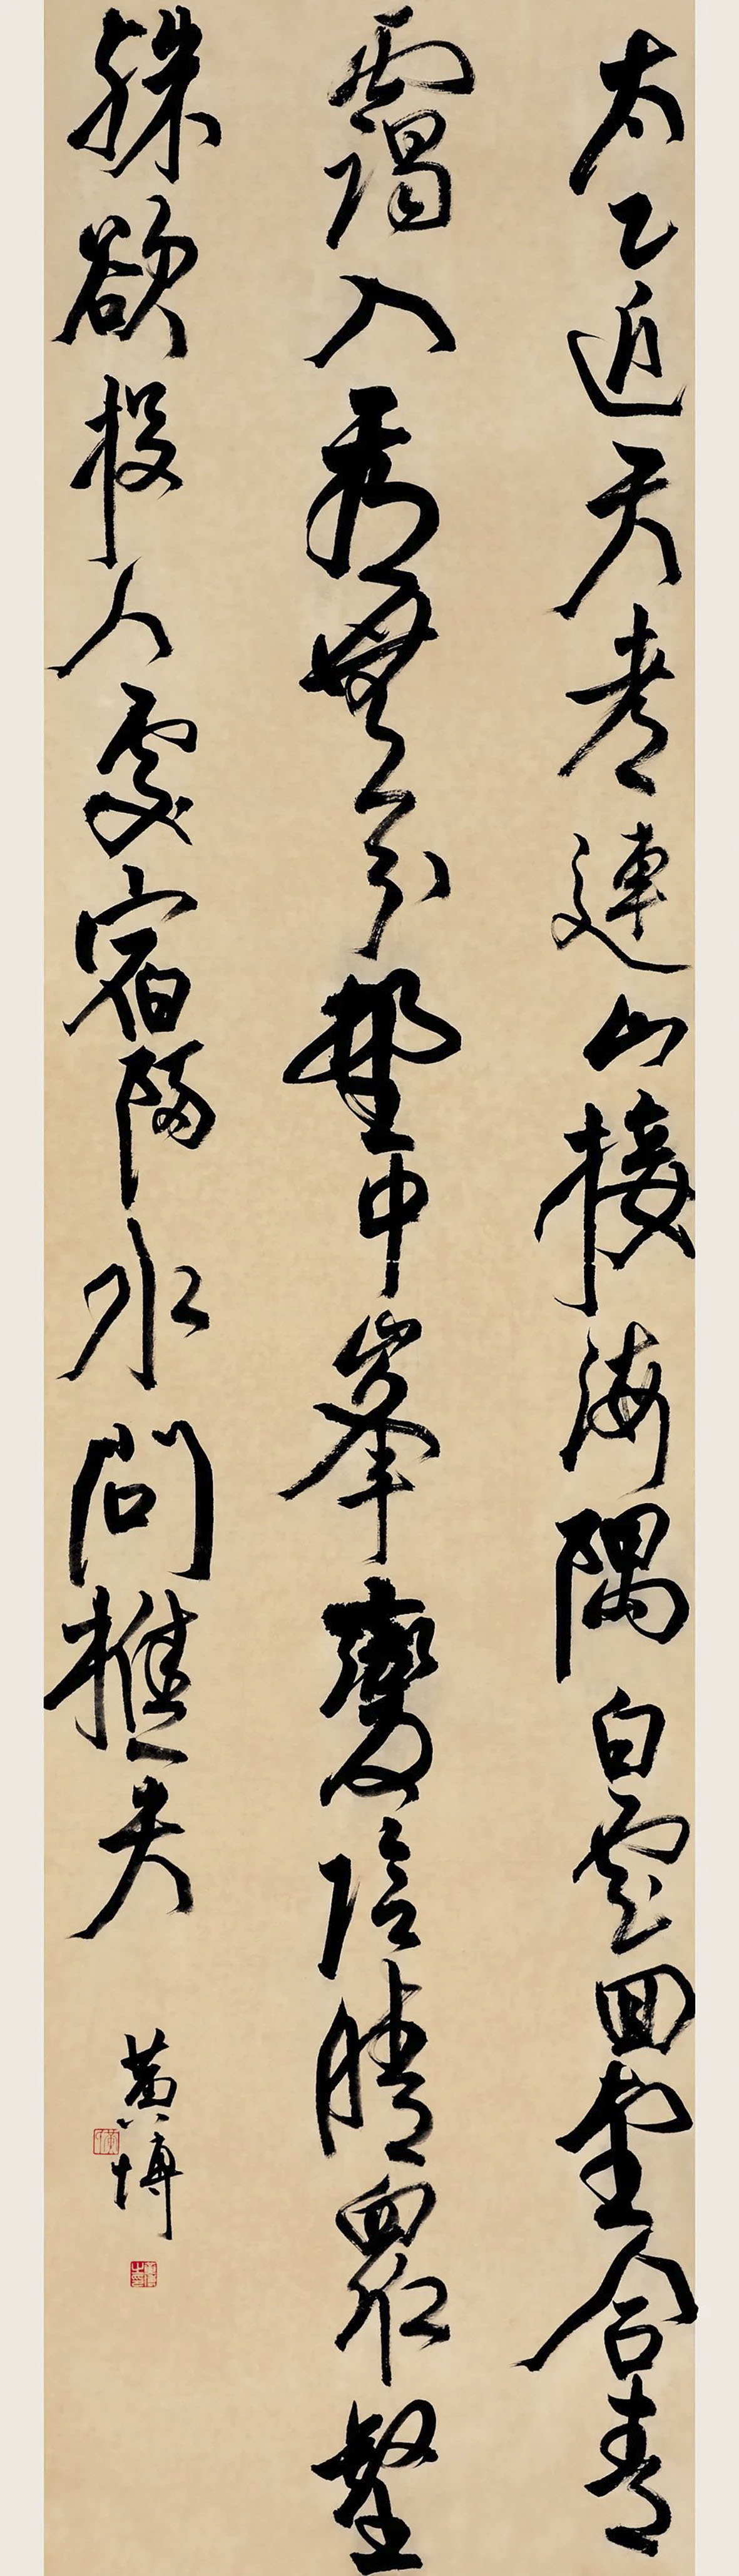 太乙近天都連山接海隅白雲回望合青
靄入看無分野中峯變陰晴眾壑
殊欲投人處宿隔水問樵夫
黄博